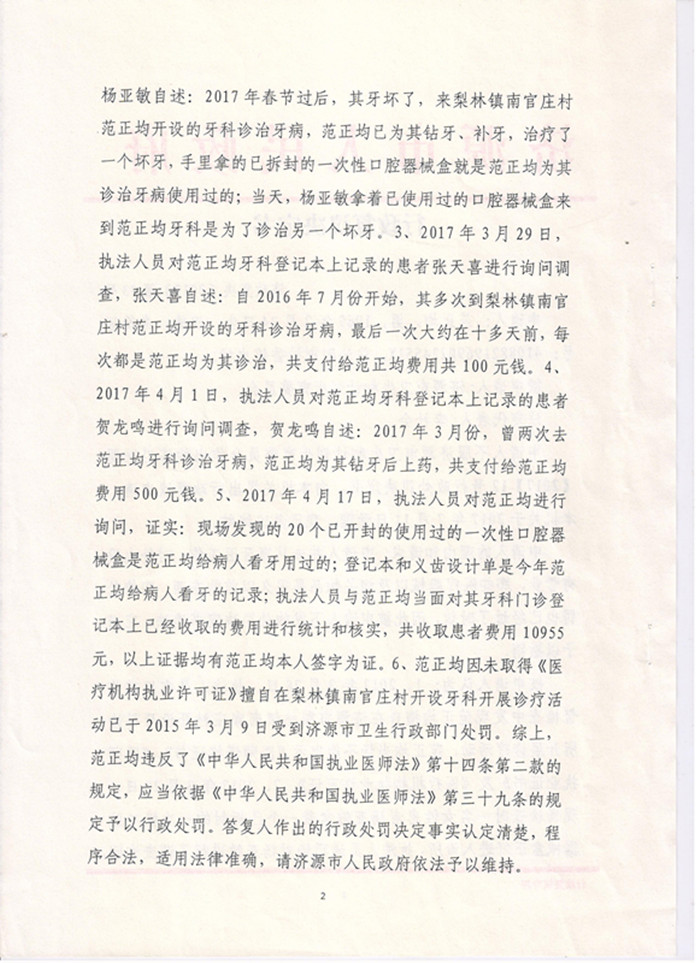 杨亚敏自述：2017年春节过后，其牙坏了，来梨林镇南官庄村
范正均开设的牙科诊治牙病，范正均已为其钻牙、补牙，治疗了
一个坏牙，手里拿的已拆封的一次性口腔器械盒就是范正均为其
诊治牙病使用过的；当天，杨亚敏拿着已使用过的口腔器械盒来
到范正均牙科是为了诊治另一个坏牙。3、2017年3月29日，
执法人员对范正均牙科登记本上记录的患者张天喜进行询问调
查，张天喜自述：自2016年7月份开始，其多次到梨林镇南官
庄村范正均开设的牙科诊治牙病，最后一次大约在十多天前，每
次都是范正均为其诊治，共支付给范正均费用共100元钱。4、
2017年4月1日，执法人员对范正均牙科登记本上记录的患者
贺龙鸣进行询问调查，贺龙鸣自述：2017年3月份，曾两次去
范正均牙科诊治牙病，范正均为其钻牙后上药，共支付给范正均
费用500元钱。5、2017年4月17日，执法人员对范正均进行
询问，证实：现场发现的20个已开封的使用过的一次性口腔器
械盒是范正均给病人看牙用过的；登记本和义齿设计单是今年范
正均给病人看牙的记录；执法人员与范正均当面对其牙科门诊登
记本上已经收取的费用进行统计和核实，共收取患者费用10955
元，以上证据均有范正均本人签字为证。6、范正均因未取得《医
疗机构执业许可证》擅自在梨林镇南官庄村开设牙科开展诊疗活
动已于2015年3月9日受到济源市卫生行政部门处罚。综上，
范正均违反了《中华人民共和国执业医师法》第十四条第二款的
规定，应当依据《中华人民共和国执业医师法》第三十九条的规
定予以行政处罚。答复人作出的行政处罚决定事实认定清楚，程
序合法，适用法律准确，请济源市人民政府依法予以维持。
2